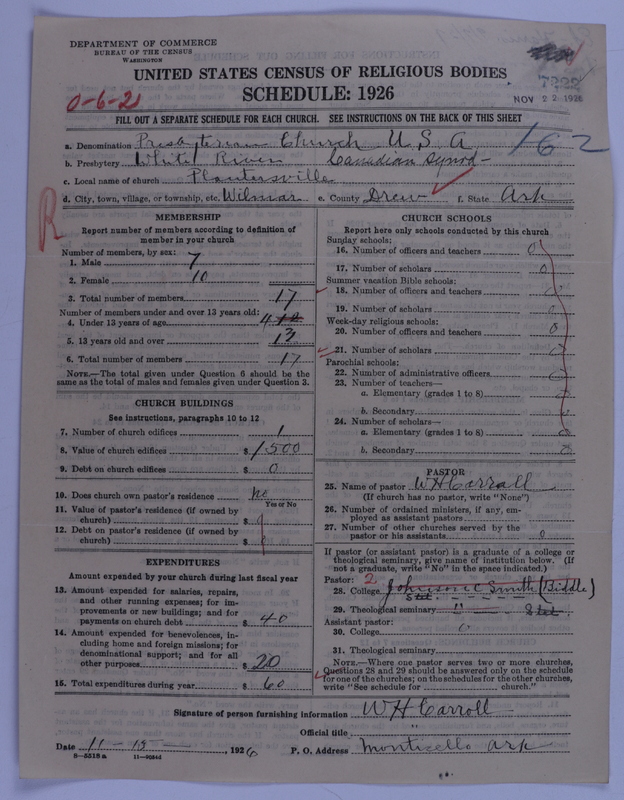 DEPARTMENT OF COMMERCE
BUREAU OF THE CENSUS
WASHINGTON
UNITED STATES CENSUS OF RELIGIOUS BODIES
SCHEDULE: 1926
0-6-2
NOV 22 1926
FILL OUT A SEPARATE SCHEDULE FOR EACH CHURCH. SEE INSTRUCTIONS ON THE BACK OF THIS SHEET
162
a. Denomination Presbyterian Church U.S.A
b. Presbytery White River Canadian Synod
c. Local name of church Plantersville
d. City, town, village, or township, etc. Wilmar e. County Drew f. State Ark
R
MEMBERSHIP
Report number of members according to definition of
member in your church
Number of members, by sex:
1. Male 7
2. Female 10
3. Total number of members 17
Number of members under and over 13 years old:
4. Under 13 years of age 4
5. 13 years old and over 13
6. Total number of members 17
NOTE.—The total given under Question 6 should be the
same as the total of males and females given under Question 3.
CHURCH BUILDINGS
See instructions, paragraphs 10 to 12
7. Number of church edifices 1
8. Value of church edifices $ 1500
9. Debt on church edifices $ 0
10. Does church own pastor's residence No
Yes or No
11. Value of pastor's residence (if owned by
church) $
12. Debt on pastor's residence (if owned by
church) $
EXPENDITURES
Amount expended by your church during last fiscal year
13. Amount expended for salaries, repairs,
and other running expenses; for im-
provements or new buildings; and for
payments on church debt $ 40
14. Amount expended for benevolences, in-
cluding home and foreign missions; for
denominational support; and for all
other purposes $ 20
15. Total expenditures during year $ 60
CHURCH SCHOOLS
Report here only schools conducted by this church
Sunday schools:
16. Number of officers and teachers 0
17. Number of scholars 0
Summer vacation Bible schools:
18. Number of officers and teachers 0
19. Number of scholars 0
Week-day religious schools:
20. Number of officers and teachers 0
21. Number of scholars 0
Parochial schools:
22. Number of administrative officers 0
23. Number of teachers—
a. Elementary (grades 1 to 8) 0
b. Secondary 0
24. Number of scholars—
a. Elementary (grades 1 to 8) 0
b. Secondary 0
PASTOR
25. Name of pastor W H Carroll
(If church has no pastor, write "None")
26. Number of ordained ministers, if any, em-
ployed as assistant pastors
27. Number of other churches served by the
pastor or his assistants 0
If pastor (or assistant pastor) is a graduate of a college or
theological seminary, give name of institution below. (If
not a graduate, write "No" in the space indicated.)
Pastor: 2
28. College Johnson C Smith (Biddle)
29. Theological seminary "
Assistant pastor:
30. College 0
31. Theological seminary
NOTE.—Where one pastor serves two or more churches,
Questions 28 and 29 should be answered only on the schedule
for one of the churches; on the schedules for the other churches,
write "See schedule for church."
Signature of person furnishing information W H Carroll
Official title "
Date 11-15-, 1926 P. O. Address Monticello Ark
8-5518a 11-9084d